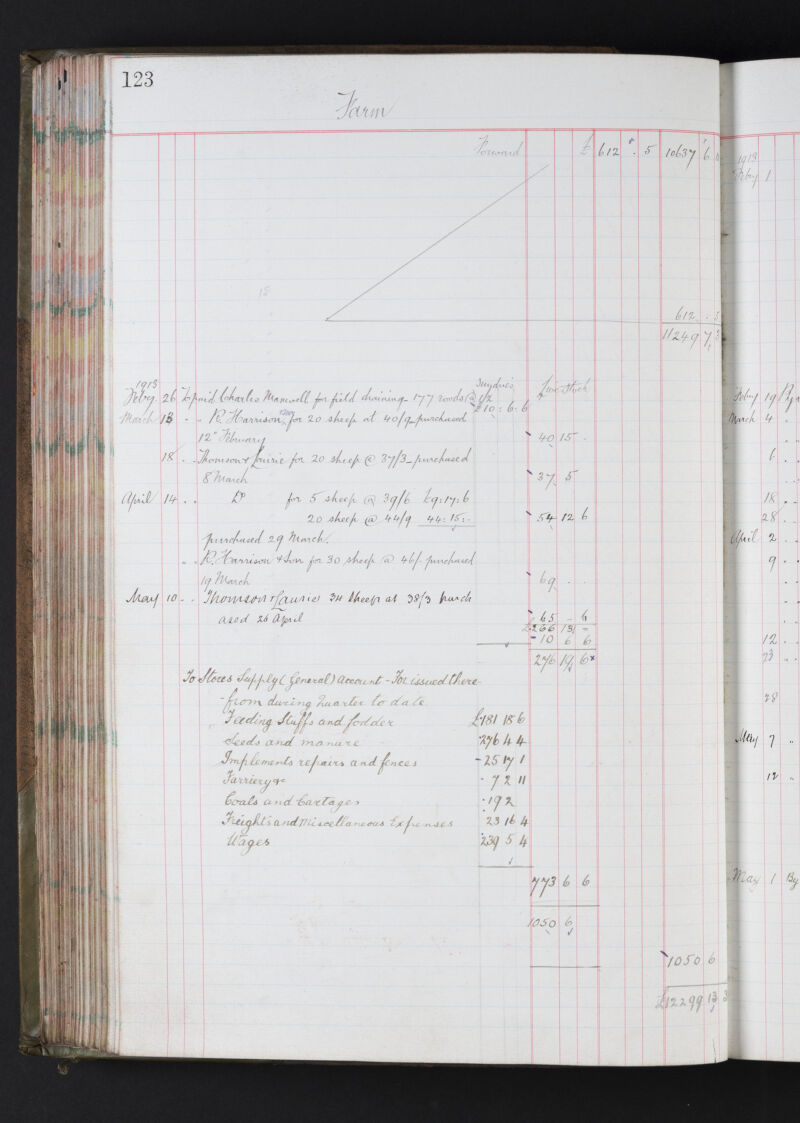 123
Farm
Forward £ 612 " . 5 10637 6
612 . 5
11249 7
1913 Sundries Live Stock
Febry 26 To paid Charles Manwell for field draining 177 roods @ 1/2 £10:6:6
March 13 " " R. Harrison for 20 sheep at 40/9 purchased
12th February 40 15 -
18 " " Thomson & Laurie for 20 sheep @ 37/3 purchased
8 March 37 5
April 14 " " Do for 5 sheep @ 39/6 £9:17:6
20 sheep @ 44/9 44:15:- 54 12 6
purchased 29 March.
" " R. Harrison & Son for 30 sheep @ 46/- purchased
19 March 69 - -
May 10 " " Thomson & Laurie 34 sheep at 38/3 purch
ased 26 April 65 - 6
£266 13 -
10 6 6
276 19 6
To Stores Supply (General) Account - For issued there
from during Quarter to date
Feeding Stuffs and fodder £181 18 6
Seeds and manure 276 4 4
Implements repairs and fences 25 17 1
Farriery &c 7 2 11
Coals and Cartages 19 2
Freights and Miscellaneous Expenses 23 16 4
Wages 239 5 4
773 6 6
1050 6
1050 6
£12299 13 3
1913
Febry 1
Febry 19
March 4
6
18
28
April 2
9
12
23
28
May 7
12
May 1 By